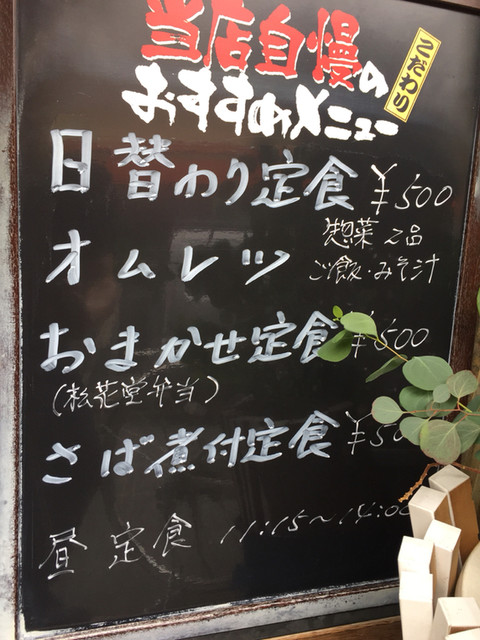 当店自慢の
こだわり
おすすめメニュー
日替わり定食 ¥500
惣菜2品
オムレツ
ご飯・みそ汁
おまかせ定食 ¥500
(松花堂弁当)
さば煮付定食 ¥50
昼定食 11:15~14:00